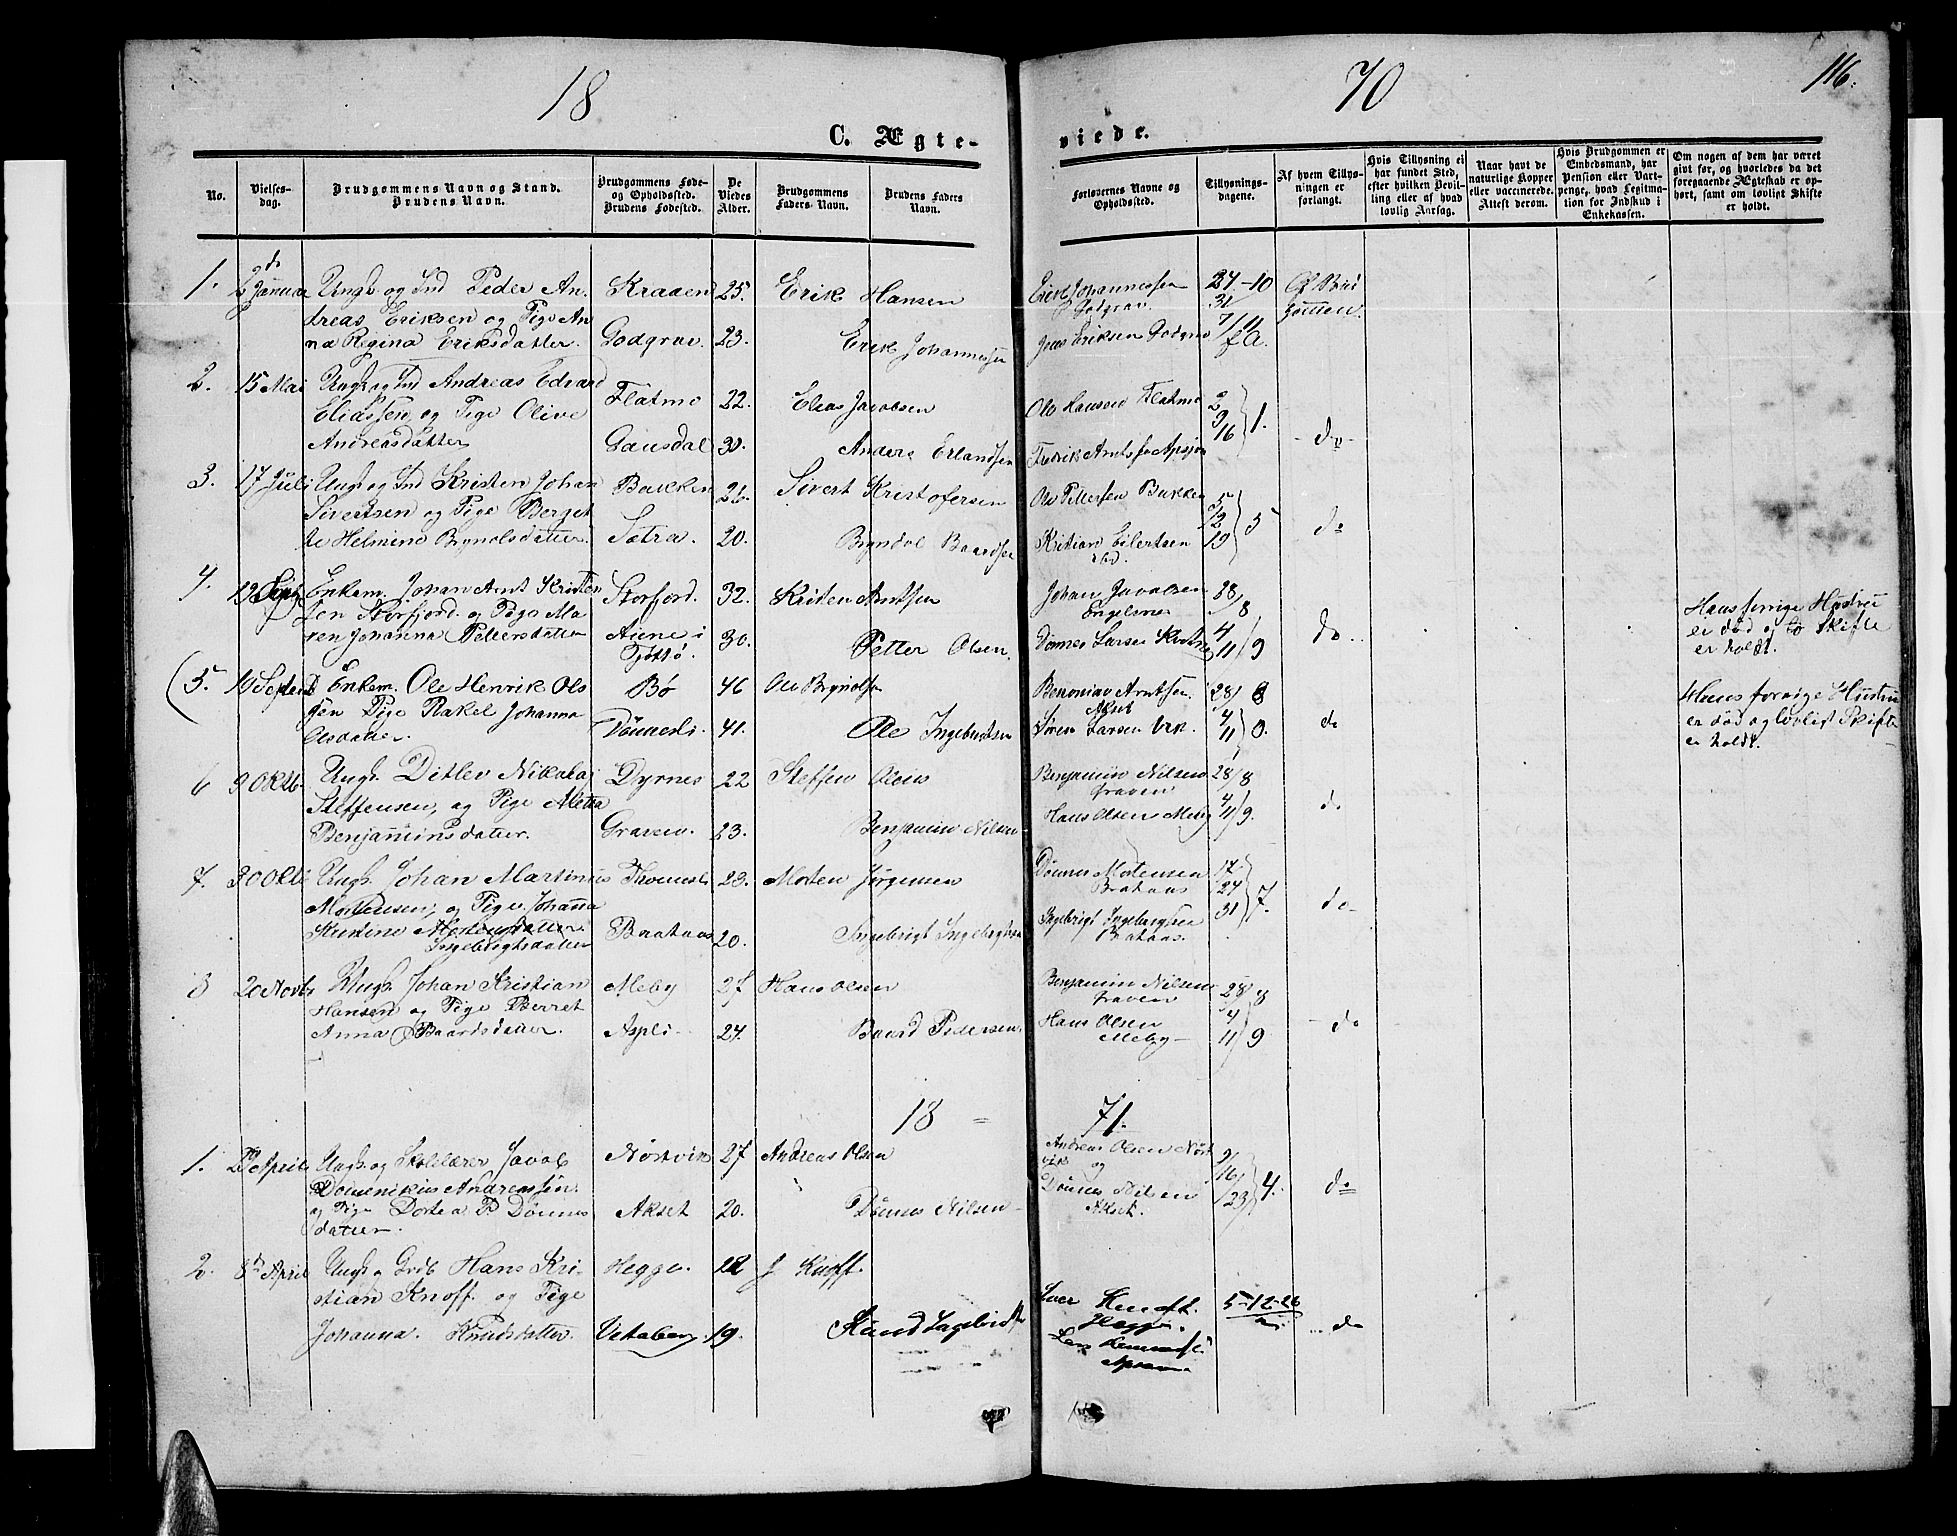 18 70 116.
C. Ægte- viede.
No. Vielses-dag. Brudgommens Navn og Stand. Brudens Navn. Brudgommens Føde- og Opholdssted. Brudens Fødested. De Viedes Alder. Brudgommens Faders Navn. Brudens Faders Navn. Forlovernes Navne og Opholdssted. Tillysnings-dagene. Af hvem Tillysningen er forlangt. Hvis Tillysning ei har fundet Sted, efter hvilken Bevilling eller af hvad lovlig Aarsag. Naar havt de naturlige Kopper eller vaccinerede. Attest derom. Hvis Brudgommen er Embedsmand, har Pension eller Vartpenge, hvad Legitimation for Indskud i Enkekassen. Om nogen af dem har været givt før, og hvorledes da det foregaaende Ægteskab er ophørt, samt om lovligt Skifte er holdt.
1. 2de Januar Ungk. og Ind Peder An- Kraaen 25. Erik Hansen Erik Johannessen 24-10
dreas Eriksen og Pige An Godgrav 31
na Regina Eriksdatter. Godgrav. 23. Erik Johannessen Jens Eriksen Godgrav 7/11
2. 15 Mai Ungk. og Ind Andreas Edvard Flatmo 22. Elias Jacobsen Ole Hansen Flatmo 2
Eliassen og Pige Olive 9 1.
Andreasdatter Gausdal 30. Anders Erlandsen Fredrik 16 do
3. 17 Juli Ungk. og Ind Kristen Johan Bakken 26. Sivert Kristofersen Ole Pettersen Bakken 5
Sivertsen og Pige Berget 12 5
te Helmine Brynolsdatter. Sætra. 20. Brynolv Baardsen Kristian Eilertsen 19 do
4. 12 Septb Enkem. Johan Arnt Kristen Storfjord. 32. Kristen Arntsen Johan Jacobsen 28/8
sen Storfjord. og Pige Ma Engelsnes Hans forrige Hustru
ren Johanna Pettersdatter Aiene i 30. Petter Olsen. Dønnes Larsen 4 do er død og lo Skifte
Tjøttø. 11/9 er holdt.
5. 19 Septemb Enkem. Ole Henrik Ols Bø 46 Ole Brynolsen Benoniav Arntsen. 28/8 Hans forrige Hustru
sen Pige Rakel Johanna Akset er død og lovligt Skifte
Olsdatter. Dønnesli. 41. Ole Ingebrigtsen Søren Larsen 4/11 9. do er holdt.
6 9 Oktb. Ungk. Ditlev Nikolaj Dyrnes 22 Steffen Olsen Benjamin Nilsen 28/8
Steffensen, og Pige Metta Graven
Benjaminsdatter. Graven. 23. Benjamin Nilsen Hans Olsen Meby 4/11 9. do
7. 30 Oktb Ungk. Johan Martinus 23. Morten Jørgensen Dønnes Mortensen 17
Mortensen, og Pige Johanna Brataas 24 7.
Kristine Mortensdatter. Brataas 20. Ingebrigt Ingebrigtsen Ingebrigt Ingebrigtsen 31 do
Ingebrigtsdatter Brataas.
8 20 Novbr Ungk. Johan Kristian Meby 27 Hans Olsen Benjamin Nilsen 28/8
Hansen og Pige Berret Graven
Anna Baardsdatter. Aspli. 24. Baard Pedersen. Hans Olsen 4 do
Meby 11/9
18 = 71.
1. 23 April Ungk. og Skolelærer Jacob Nørtvik 27 Andreas Olsen Andreas Olsen Nørt 9
Domenikus Andreassen. vik og 16 4.
og Pige Dortea P Dønnes Akset 20. Dønnes Nilsen Dønnes Nilsen 23 do
datter. Akset.
2. 8de April Ungk. og Grdb Hans Kri- Hegge. 22 J Knoff. Knoff. 5-12-26
stian Knoff. og Pige Hegge.
Johanna. Knudsdatter. Vetaberg. 19. Knud do